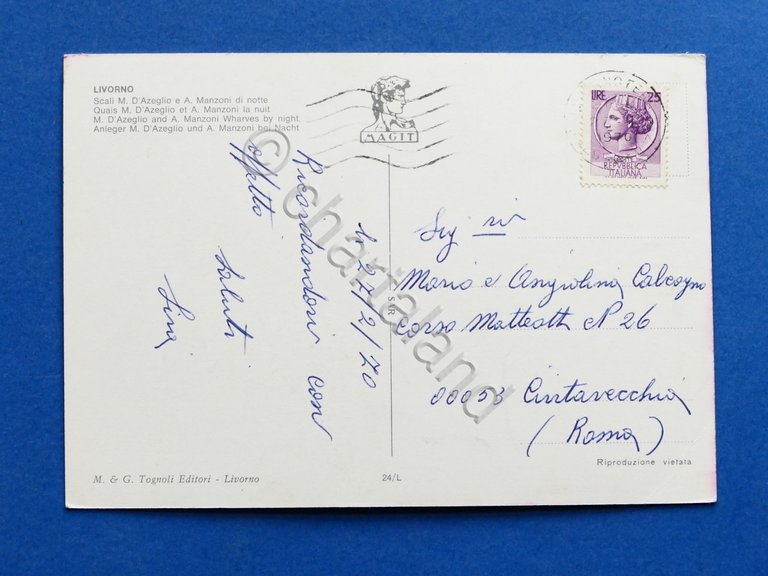 LIVORNO
Scali M. D'Azeglio e A. Manzoni di notte
Quais M. D'Azeglio et A. Manzoni la nuit
M. D'Azeglio and A. Manzoni Wharves by night
Anleger M. D'Azeglio und A. Manzoni bei Nacht
MAGIT
LIRE 25
POSTE
REPVBBLICA
ITALIANA
li 27/2/70
Ricordandovi con
affetto
saluti
Lina
Sig ri
Mario e Angiolina
Corso Matteotti N 26
00053 Civitavecchia
(Roma)
Riproduzione vietata
M. & G. Tognoli Editori - Livorno
24/L
© chartaland